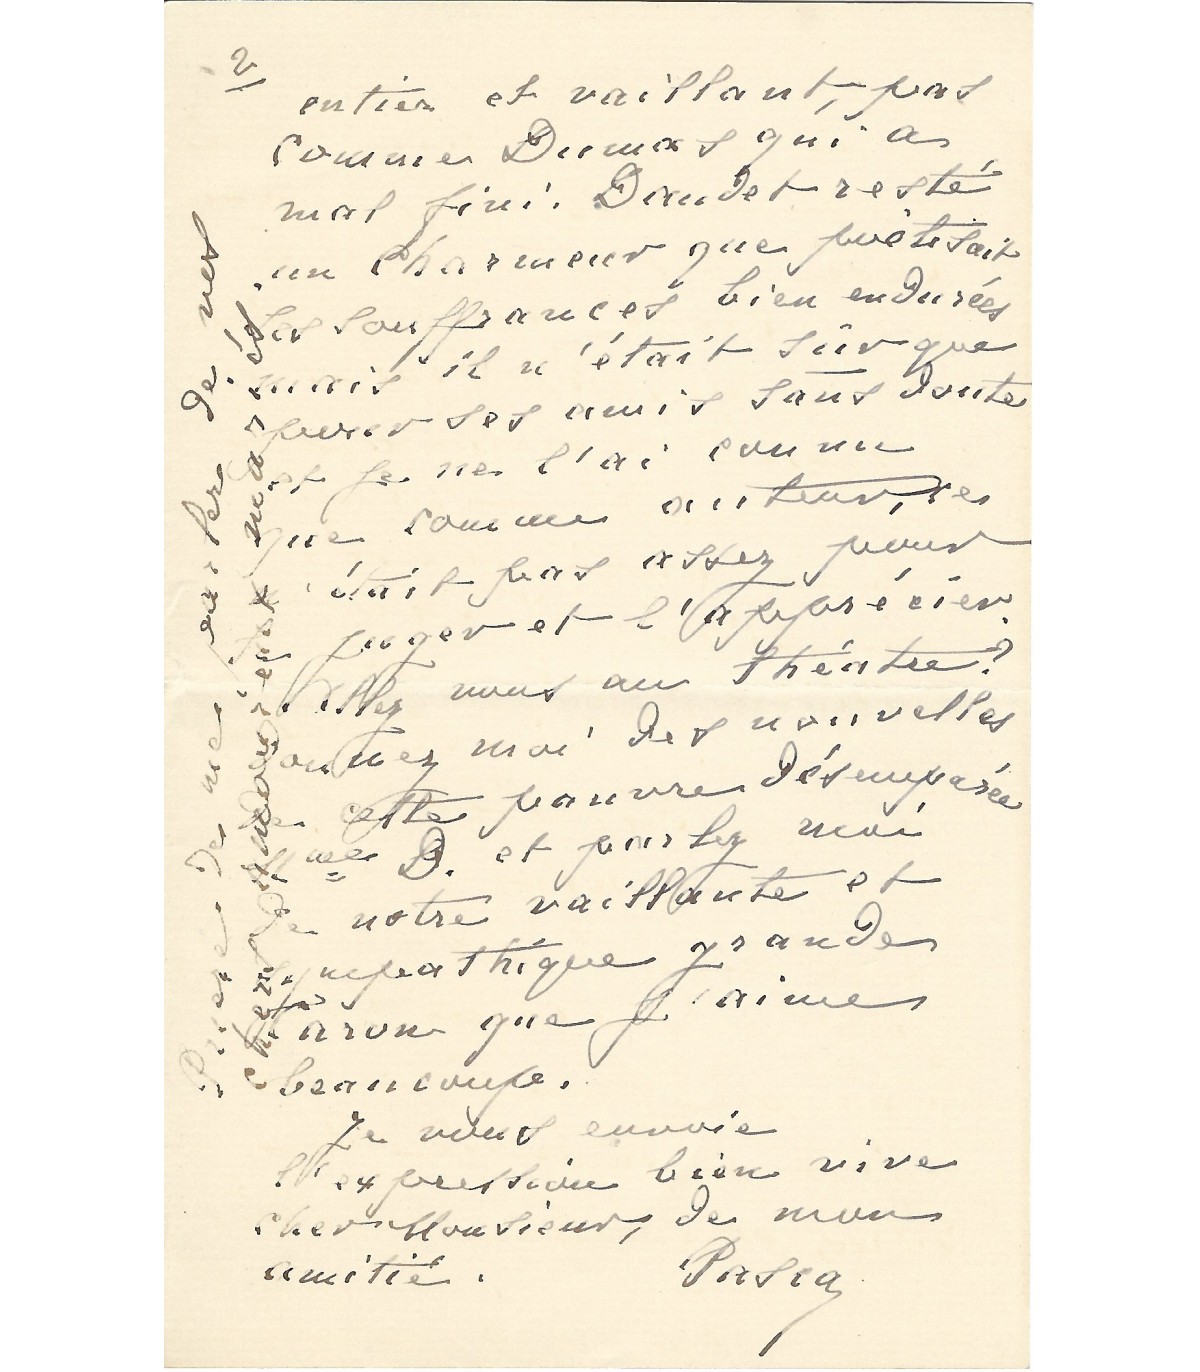 2/
entier et vaillant, pas
comme Dumas qui a
mal fini. Daudet resté
un charmeur que poétisait
ses souffrances bien endurées
mais il n'était sûr que
pour ses amis sans doute
et je ne l'ai connu
que comme auteur, ce
n'était pas assez pour
juger et l'apprécier.
Allez vous au théatre?
donnez moi des nouvelles
de cette pauvre désemparée
Mme D. et parlez moi
de notre vaillante et
sympathique grande
Caron que j'aime
beaucoup.
Je vous envoie
l'expression bien vive
cher Monsieur, de mon
amitié.
Pasca
Priere de ne me parler de mes
chers